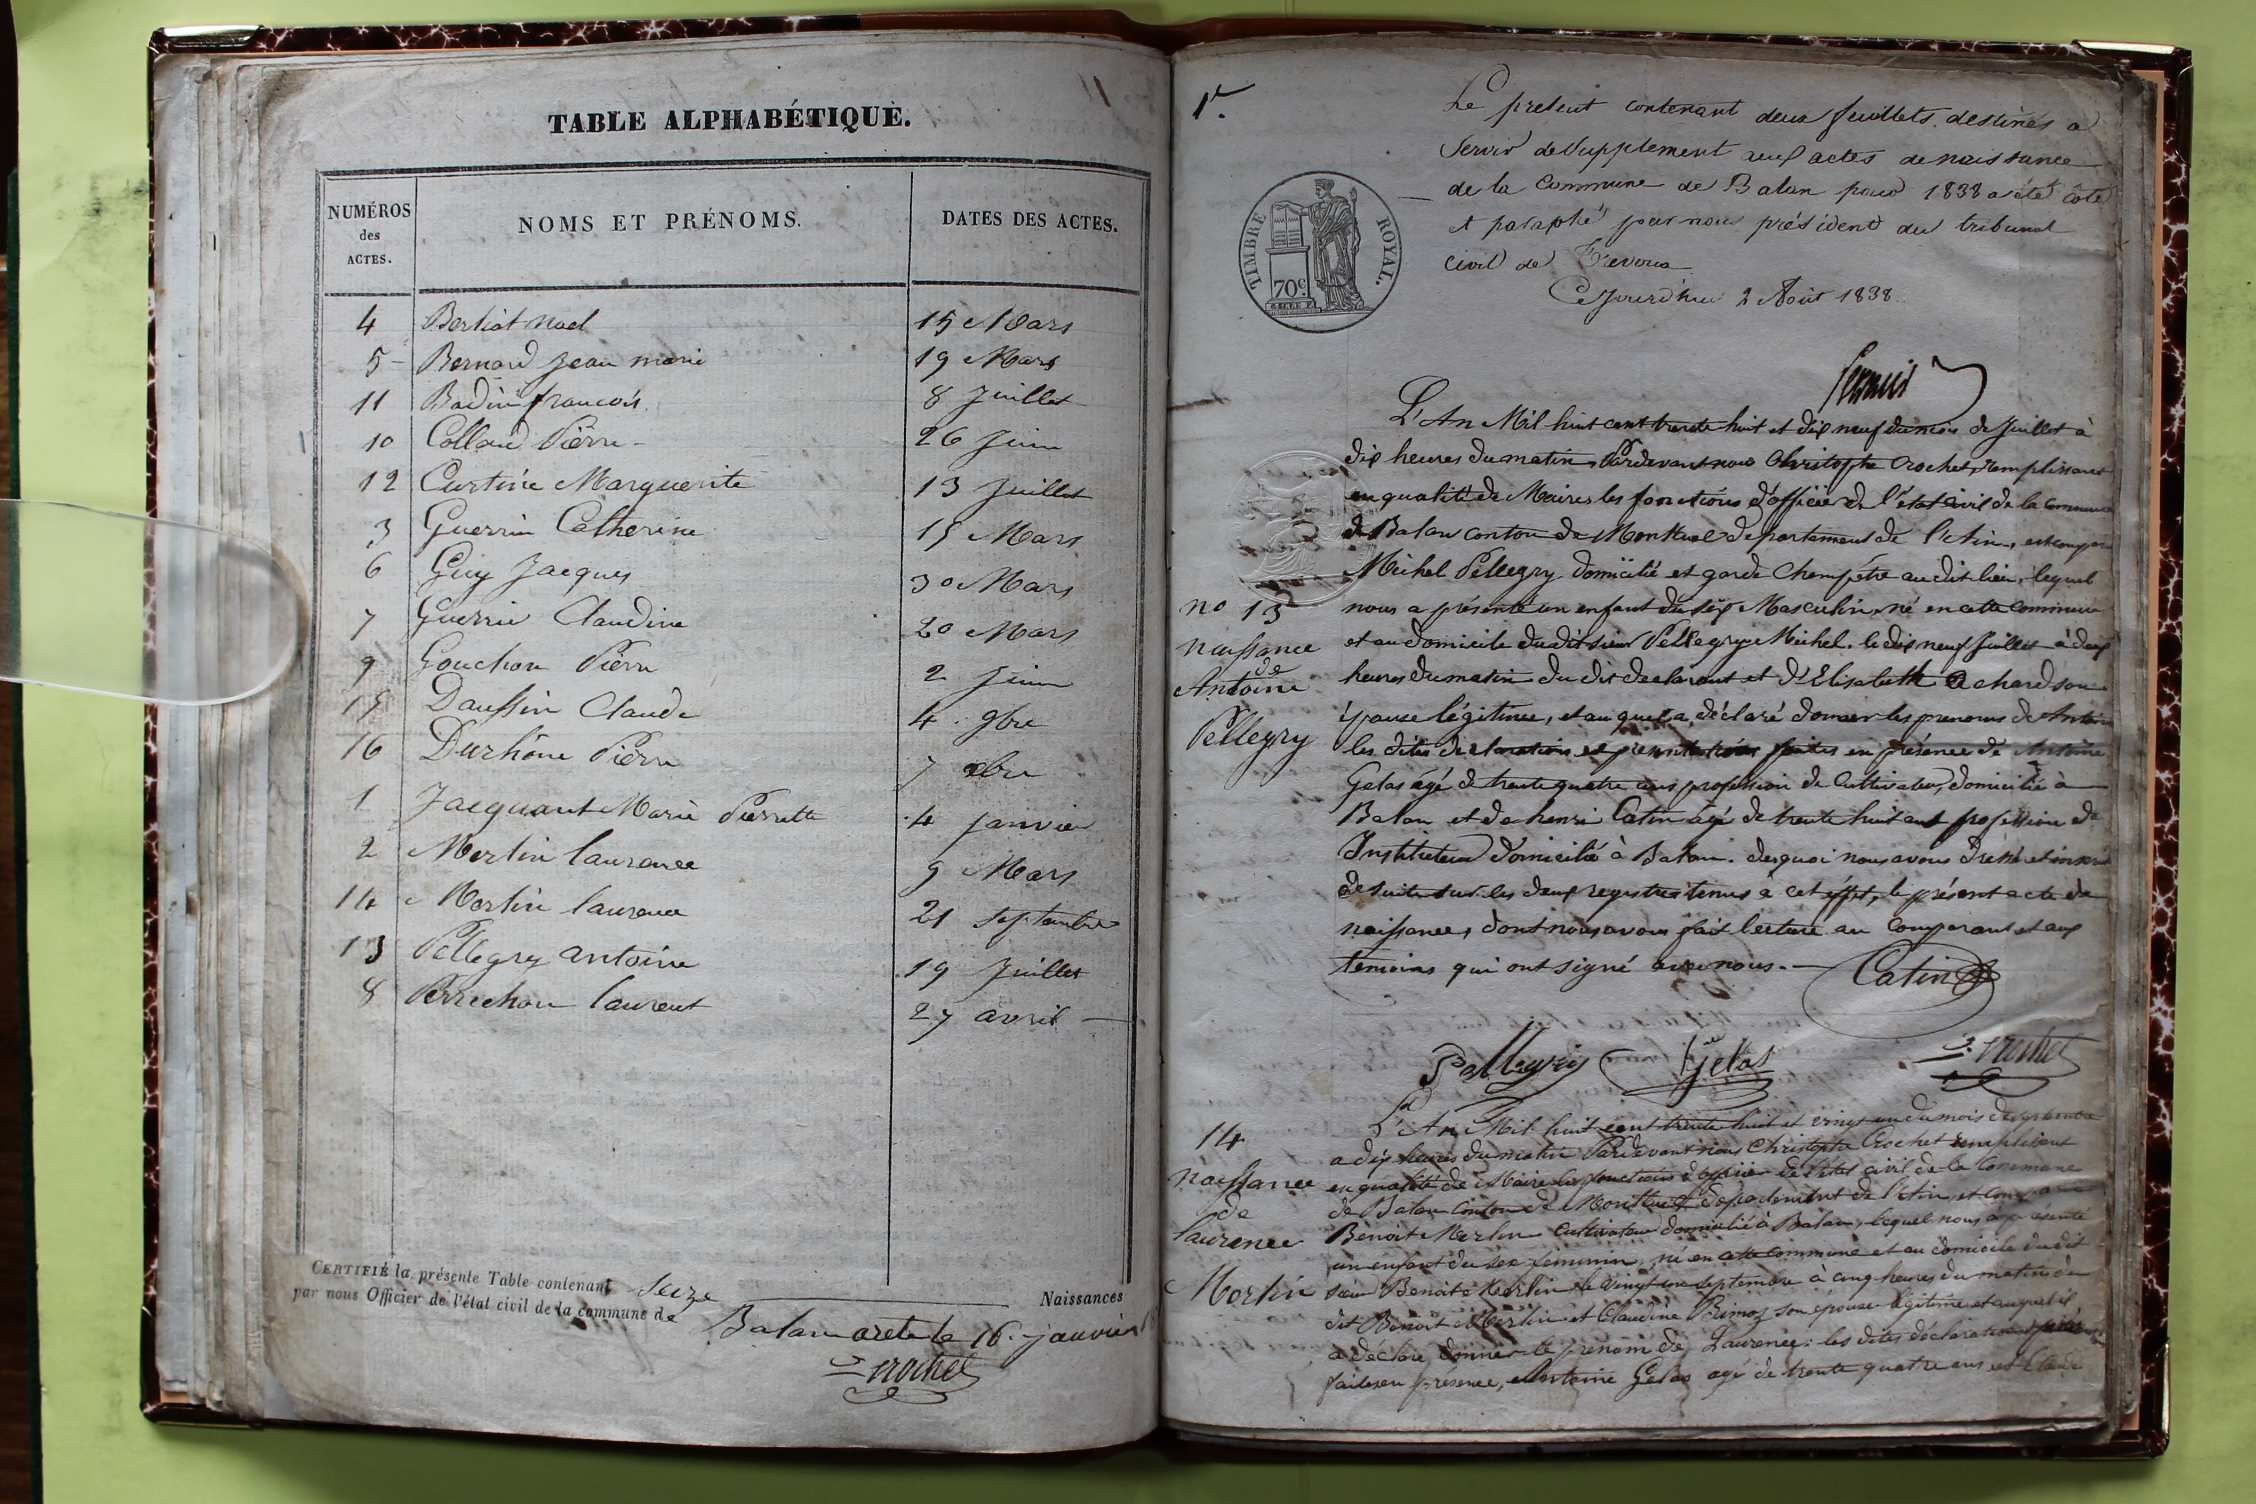 11
TABLE ALPHABÉTIQUE.
NUMÉROS des ACTES. NOMS ET PRÉNOMS. DATES DES ACTES.
4 Berliat Noel 15 Mars
5 Bernard Jean marie 19 Mars
11 Badin francois 8 Juillet
10 Colland Pierre 26 Juin
12 Curtine Marguerite 13 Juillet
3 Guerrin Catherine 15 Mars
6 Guy Jacques 30 Mars
7 Guerrin Claudine 20 Mars
9 Gouchon Pierre 2 Juin
15 Daussin Claude 4 9bre
16 Durhône Pierre 7 xbre
1 Jacquant Marie Pierrette 4 janvier
2 Merlin laurence 9 Mars
14 Merlin laurence 21 septembre
13 Pellegry antoine 19 Juillet
8 Perrichon laurent 27 avril
CERTIFIÉ la présente Table contenant Seize Naissances
par nous Officier de l'état civil de la commune de Balan arete le 16 janvier
Crochet
1r.
Le present contenant deux feuillets destinés a
Servir de Supplement aux actes de naissance
de la Commune de Balan pour 1838 a été côté
et paraphé par nous président du tribunal
civil de Trevoux
Cejourd'hui 2 Août 1838.
TIMBRE ROYAL.
70c.
L'An Mil huit cent trente huit et dix neuf du mois de Juillet à
dix heures du matin, Pardevant nous Christophe Crochet, remplissant
en qualité de Maire les fonctions d'officier de l'état civil de la Commune
de Balan canton de Montluel departement de l'Ain, est comparu
Michel Pellegry domicilié et garde Champêtre au dit lieu, lequel
no 13
naissance
de
Antoine
Pellegry
nous a présenté un enfant du sèxe Masculin, né en cette commune
et au domicile du dit sieur Pellegry Michel. le dix neuf Juillet à deux
heures du matin du dit declarant et d'Elisabeth Achard son
épouse légitime, et au quel a déclaré donner les prenoms de Antoine
les dites declarations et présentations faites en présence de Antoine
Gelas âgé de trente quatre ans profession de Cultivateur, domicilié à
Balan et de henri Catin âgé de trente huit ans profession de
Instituteur domicilié à Balan. de quoi nous avons dressé et inscrit
de suite sur les deux registres tenus à cet effet, le présent acte de
naissance, dont nous avons fait lecture au comparant et aux
temoins qui ont signé avec nous.
Catin
Pellegry Gelas Crochet
14
naissance
de
laurence
Merlin
L'An Mil huit cent trente huit et vingt un du mois de septembre
a dix heures du matin Pardevant nous Christophe Crochet remplissant
en qualité de Maire les fonctions d'officier de l'état civil de la Commune
de Balan Canton de Montluel departement de l'Ain, est comparu
Benoit Merlin Cultivateur domicilié à Balan, lequel nous a présenté
un enfant du sèx feminin, né en cette commune et au domicile du dit
sieur Benoit Merlin le vingt un septembre à cinq heures du matin du
dit Benoit Merlin et Claudine Rimoz son épouse légitime et auquel il
a déclaré donner le prénom de Laurence: les dites déclarations
faites en présence, Antoine Gelas agé de trente quatre ans et